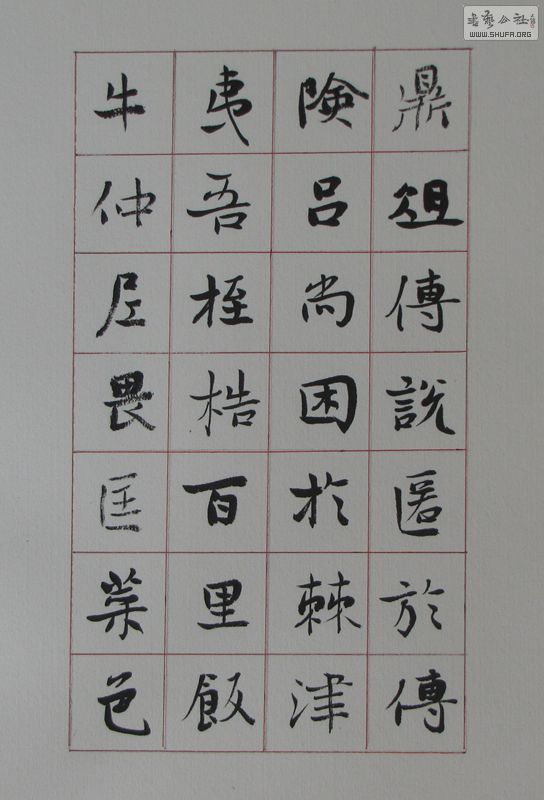 鼎俎傳說匿於傳
険呂尚困於棘津
夷吾桎梏百里飯
牛仲尼畏匡菜色
书艺公社
WWW.SHUFA.ORG